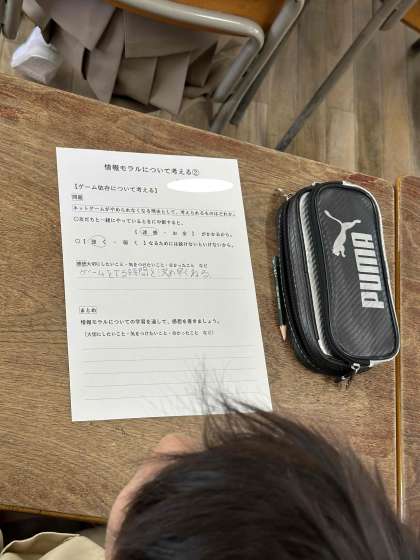 情報モラルについて考える②
【ゲーム依存について考える】
問題
ネットゲームがやめられなくなる理由として、考えられるものはどれか。
○友だちと一緒にやっているときに中断すると、
【 迷惑 ・ お金 】がかかるから。
○【 強く ・ 弱く 】なるためには続けないといけないから。
感想大切にしたいこと・気をつけたいこと・分かったこと など
まとめ
情報モラルについての学習を通して、感想を書きましょう。
(大切にしたいこと・気をつけたいこと・分かったこと など)
PUMA